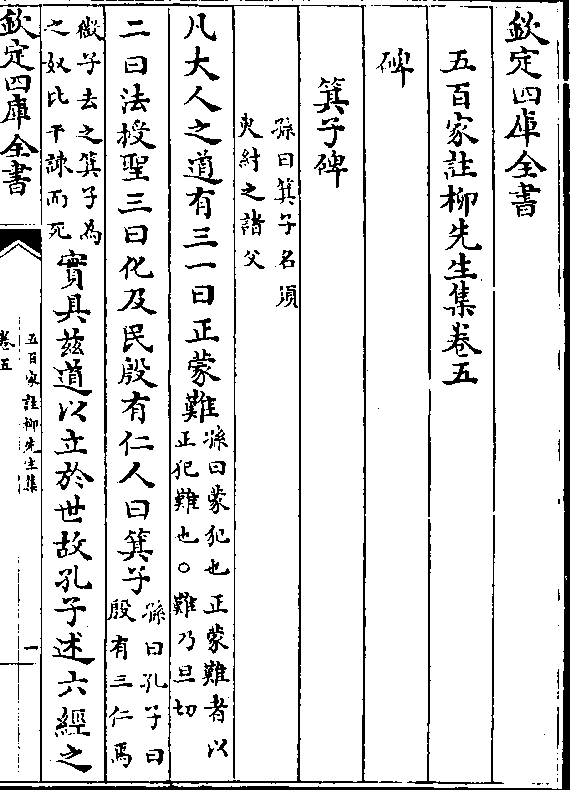 欽定四庫全書
五百家註柳先生集卷五
碑
箕子碑
孫曰箕子名須
臾紂之諸父
凡大人之道有三一曰正蒙難孫曰蒙犯也正蒙難者以正犯難也○難乃旦切
二曰法授聖三曰化及民殷有仁人曰箕子孫曰孔子曰殷有三仁焉
微子去之箕子為之奴比干諫而死實具兹道以立於世故孔子述六經之
欽定四庫全書
五百家註柳先生集
卷五
一